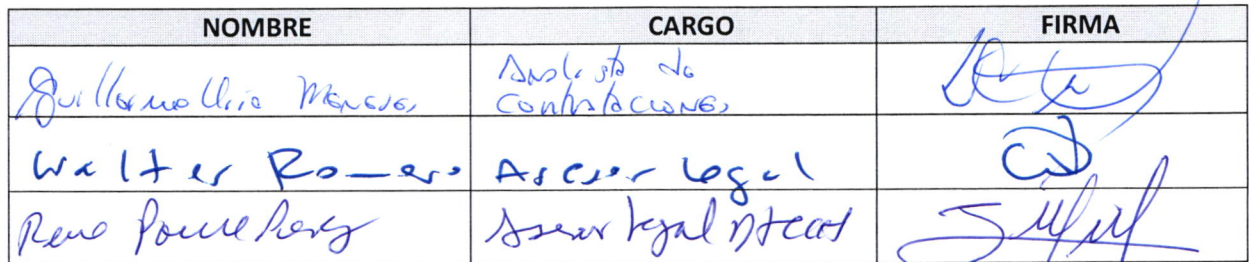 NOMBRE CARGO FIRMA
Guillermo Meneses Analista de
Contrataciones
Walter Romero Asesor Legal
Rene Ponce Asesor Legal